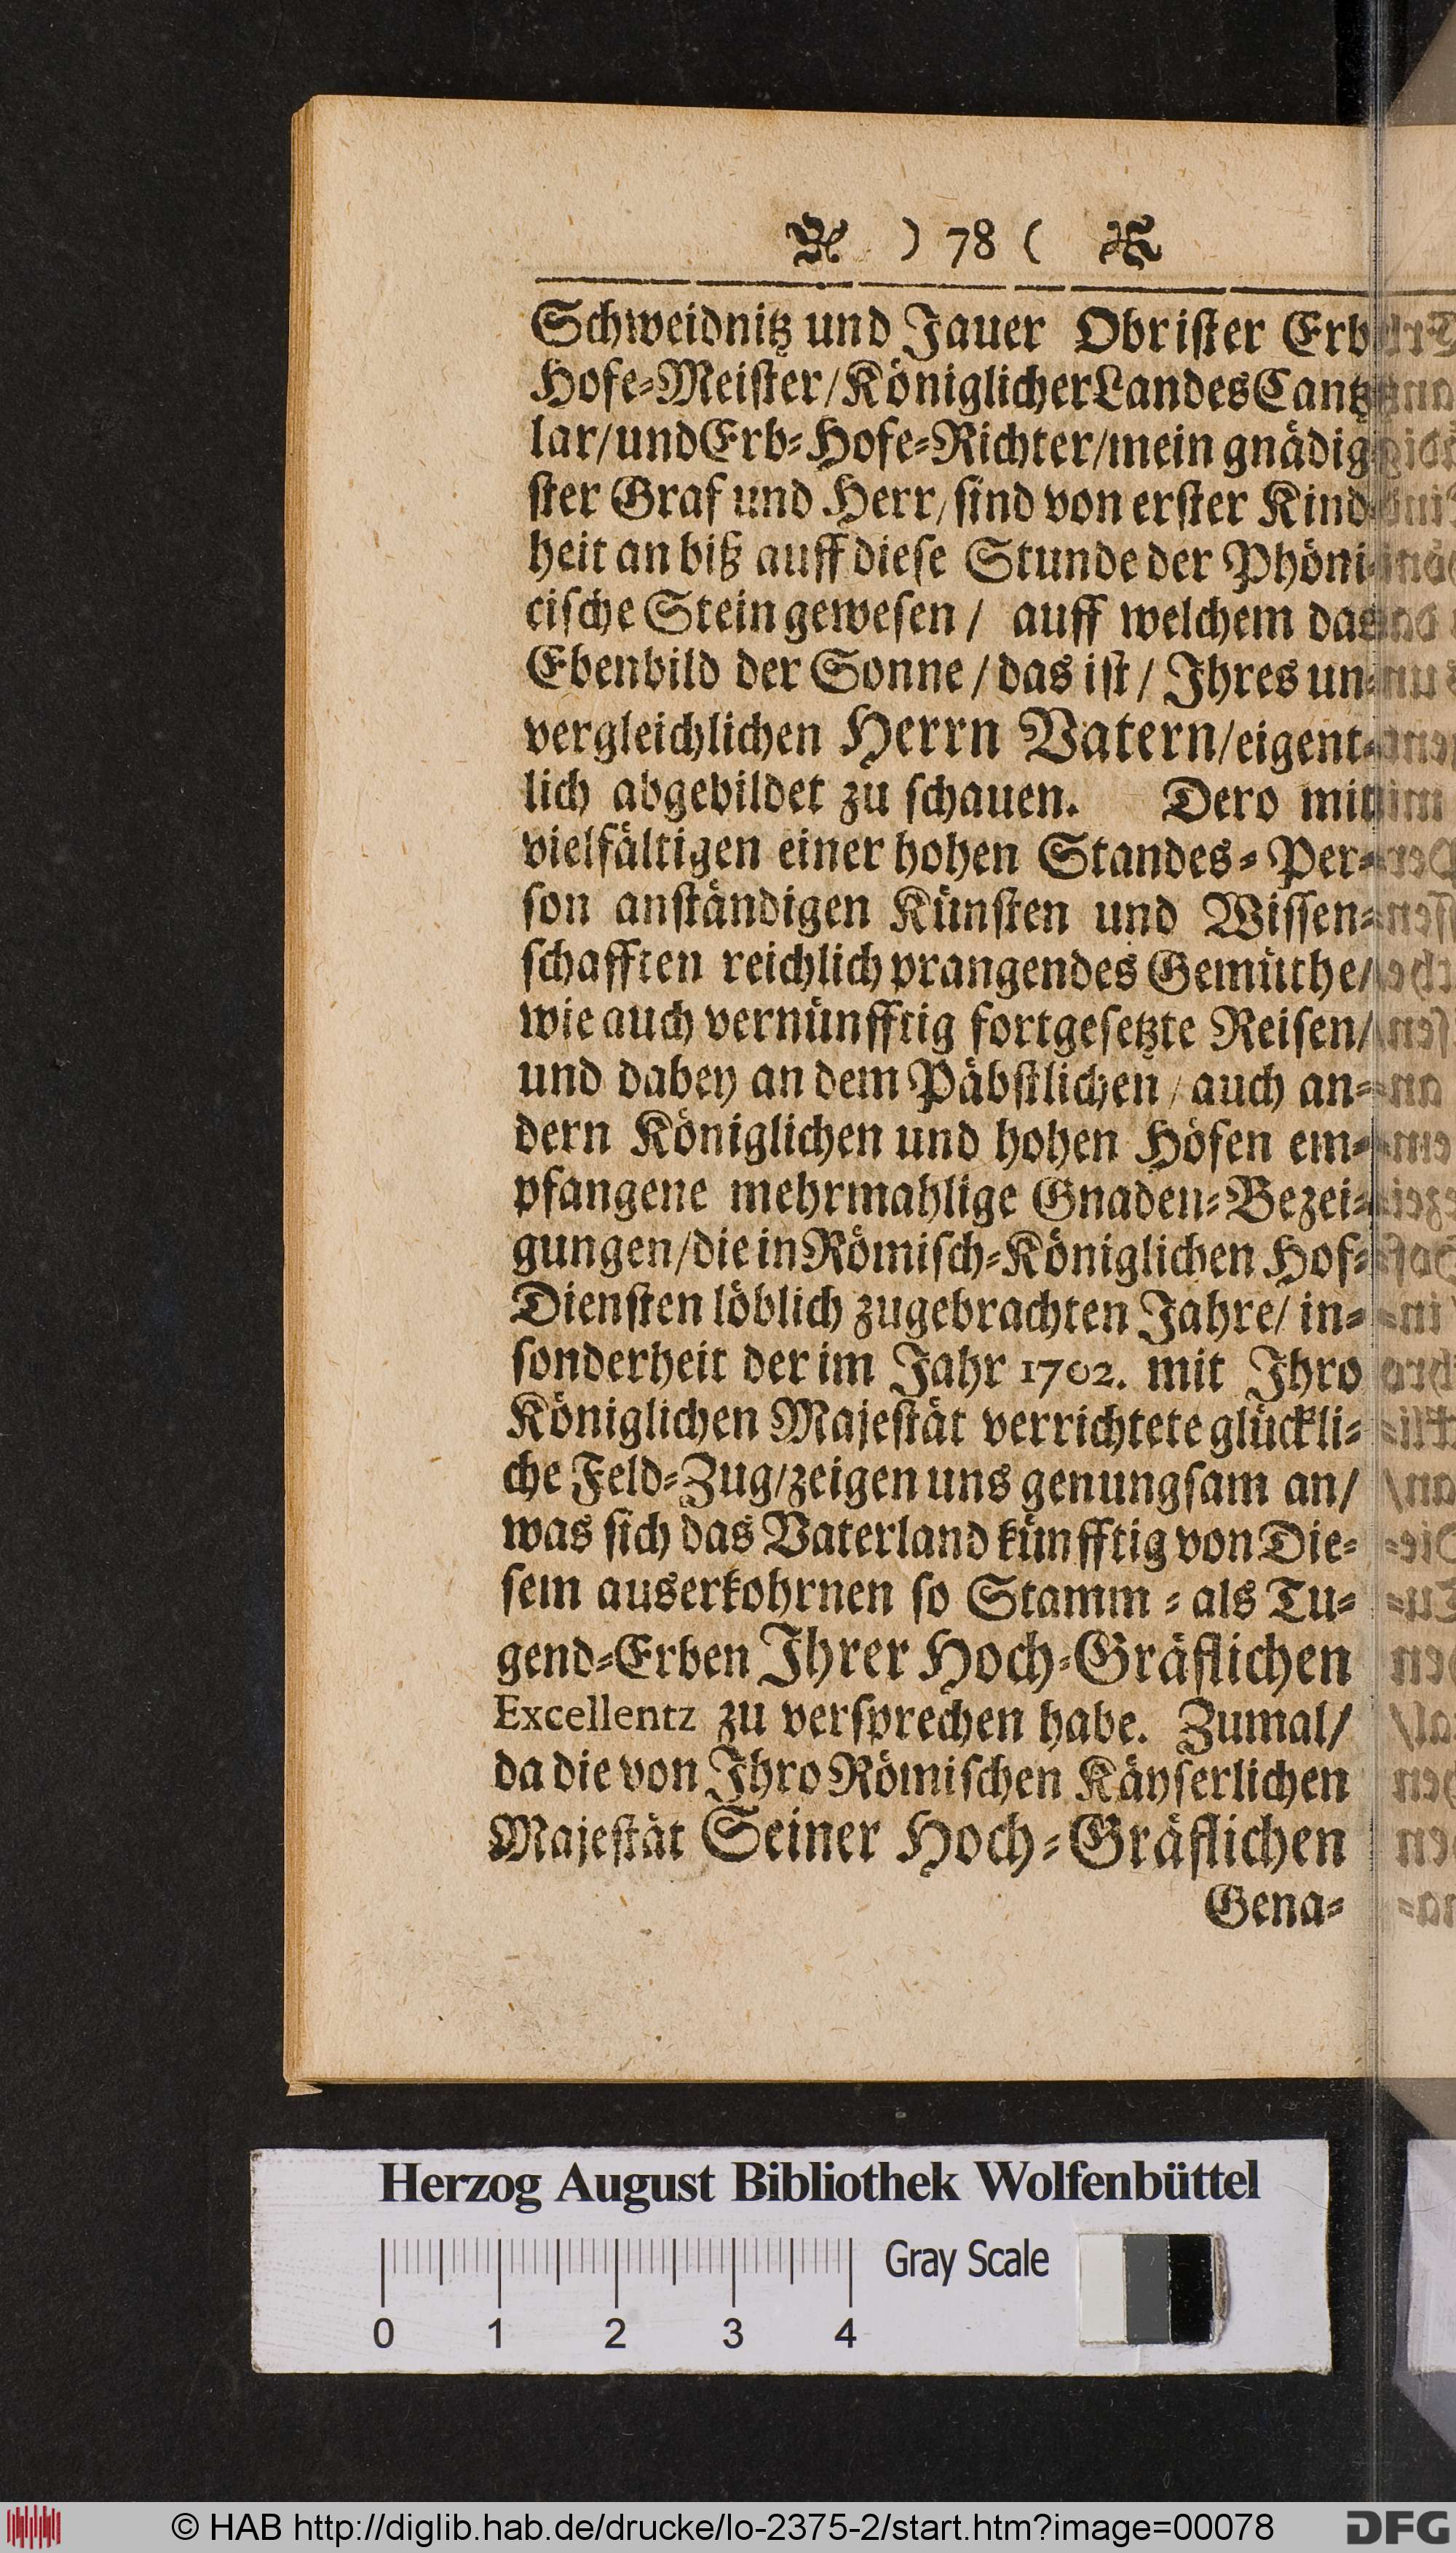 ) 78 (
Schweidnitz und Jauer Obrister Erb
Hofe⸗Meister/Königlicher Landes Cantz
lar/und Erb⸗Hofe⸗Richter/mein gnädig
ster Graf und Herr/sind von erster Kind
heit an biß auff diese Stunde der Phöni⸗
cische Stein gewesen/ auff welchem das
Ebenbild der Sonne/das ist/Ihres un⸗
vergleichlichen Herrn Vatern/eigent⸗
lich abgebildet zu schauen. Dero mit
vielfältigen einer hohen Standes⸗Per⸗
son anständigen Künsten und Wissen⸗
schafften reichlich prangendes Gemüthe/
wie auch vernünfftig fortgesetzte Reisen/
und dabey an dem Päbstlichen/auch an⸗
dern Königlichen und hohen Höfen em⸗
pfangene mehrmahlige Gnaden⸗Bezei⸗
gungen/die in Römisch⸗Königlichen Hof⸗
Diensten löblich zugebrachten Jahre/in⸗
sonderheit der im Jahr 1702. mit Ihro
Königlichen Majestät verrichtete glückli⸗
che Feld⸗Zug/zeigen uns genungsam an/
was sich das Vaterland künfftig von Die⸗
sem auserkohrnen so Stamm⸗als Tu⸗
gend⸗Erben Ihrer Hoch⸗Gräflichen
Excellentz zu versprechen habe. Zumal/
da die von Ihro Römischen Käyserlichen
Majestät Seiner Hoch⸗Gräflichen
Gena⸗
Herzog August Bibliothek Wolfenbüttel
0 1 2 3 4 Gray Scale
© HAB http://diglib.hab.de/drucke/lo-2375-2/start.htm?image=00078 DFG